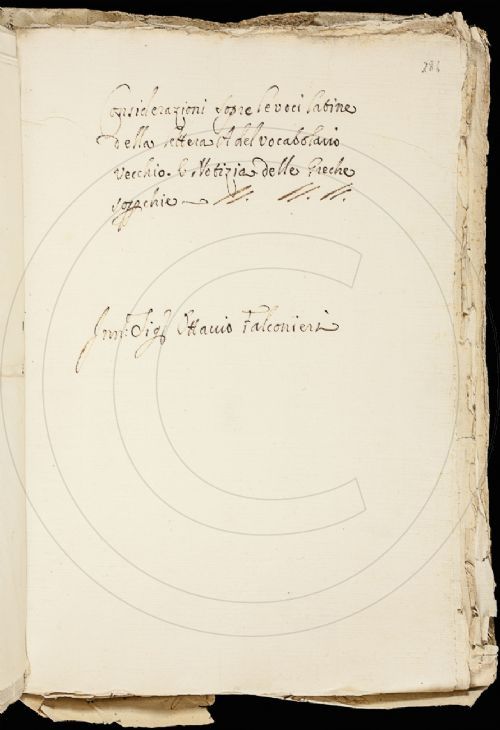 Considerazioni sopre le voci latine
della lettera M del vocabolario
vecchio e Notizia delle Greche
soperchie
Sig.r Ottavio Falconieri